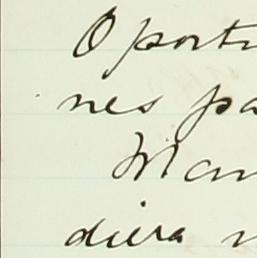 Oportu
nes pa
Man
diera n